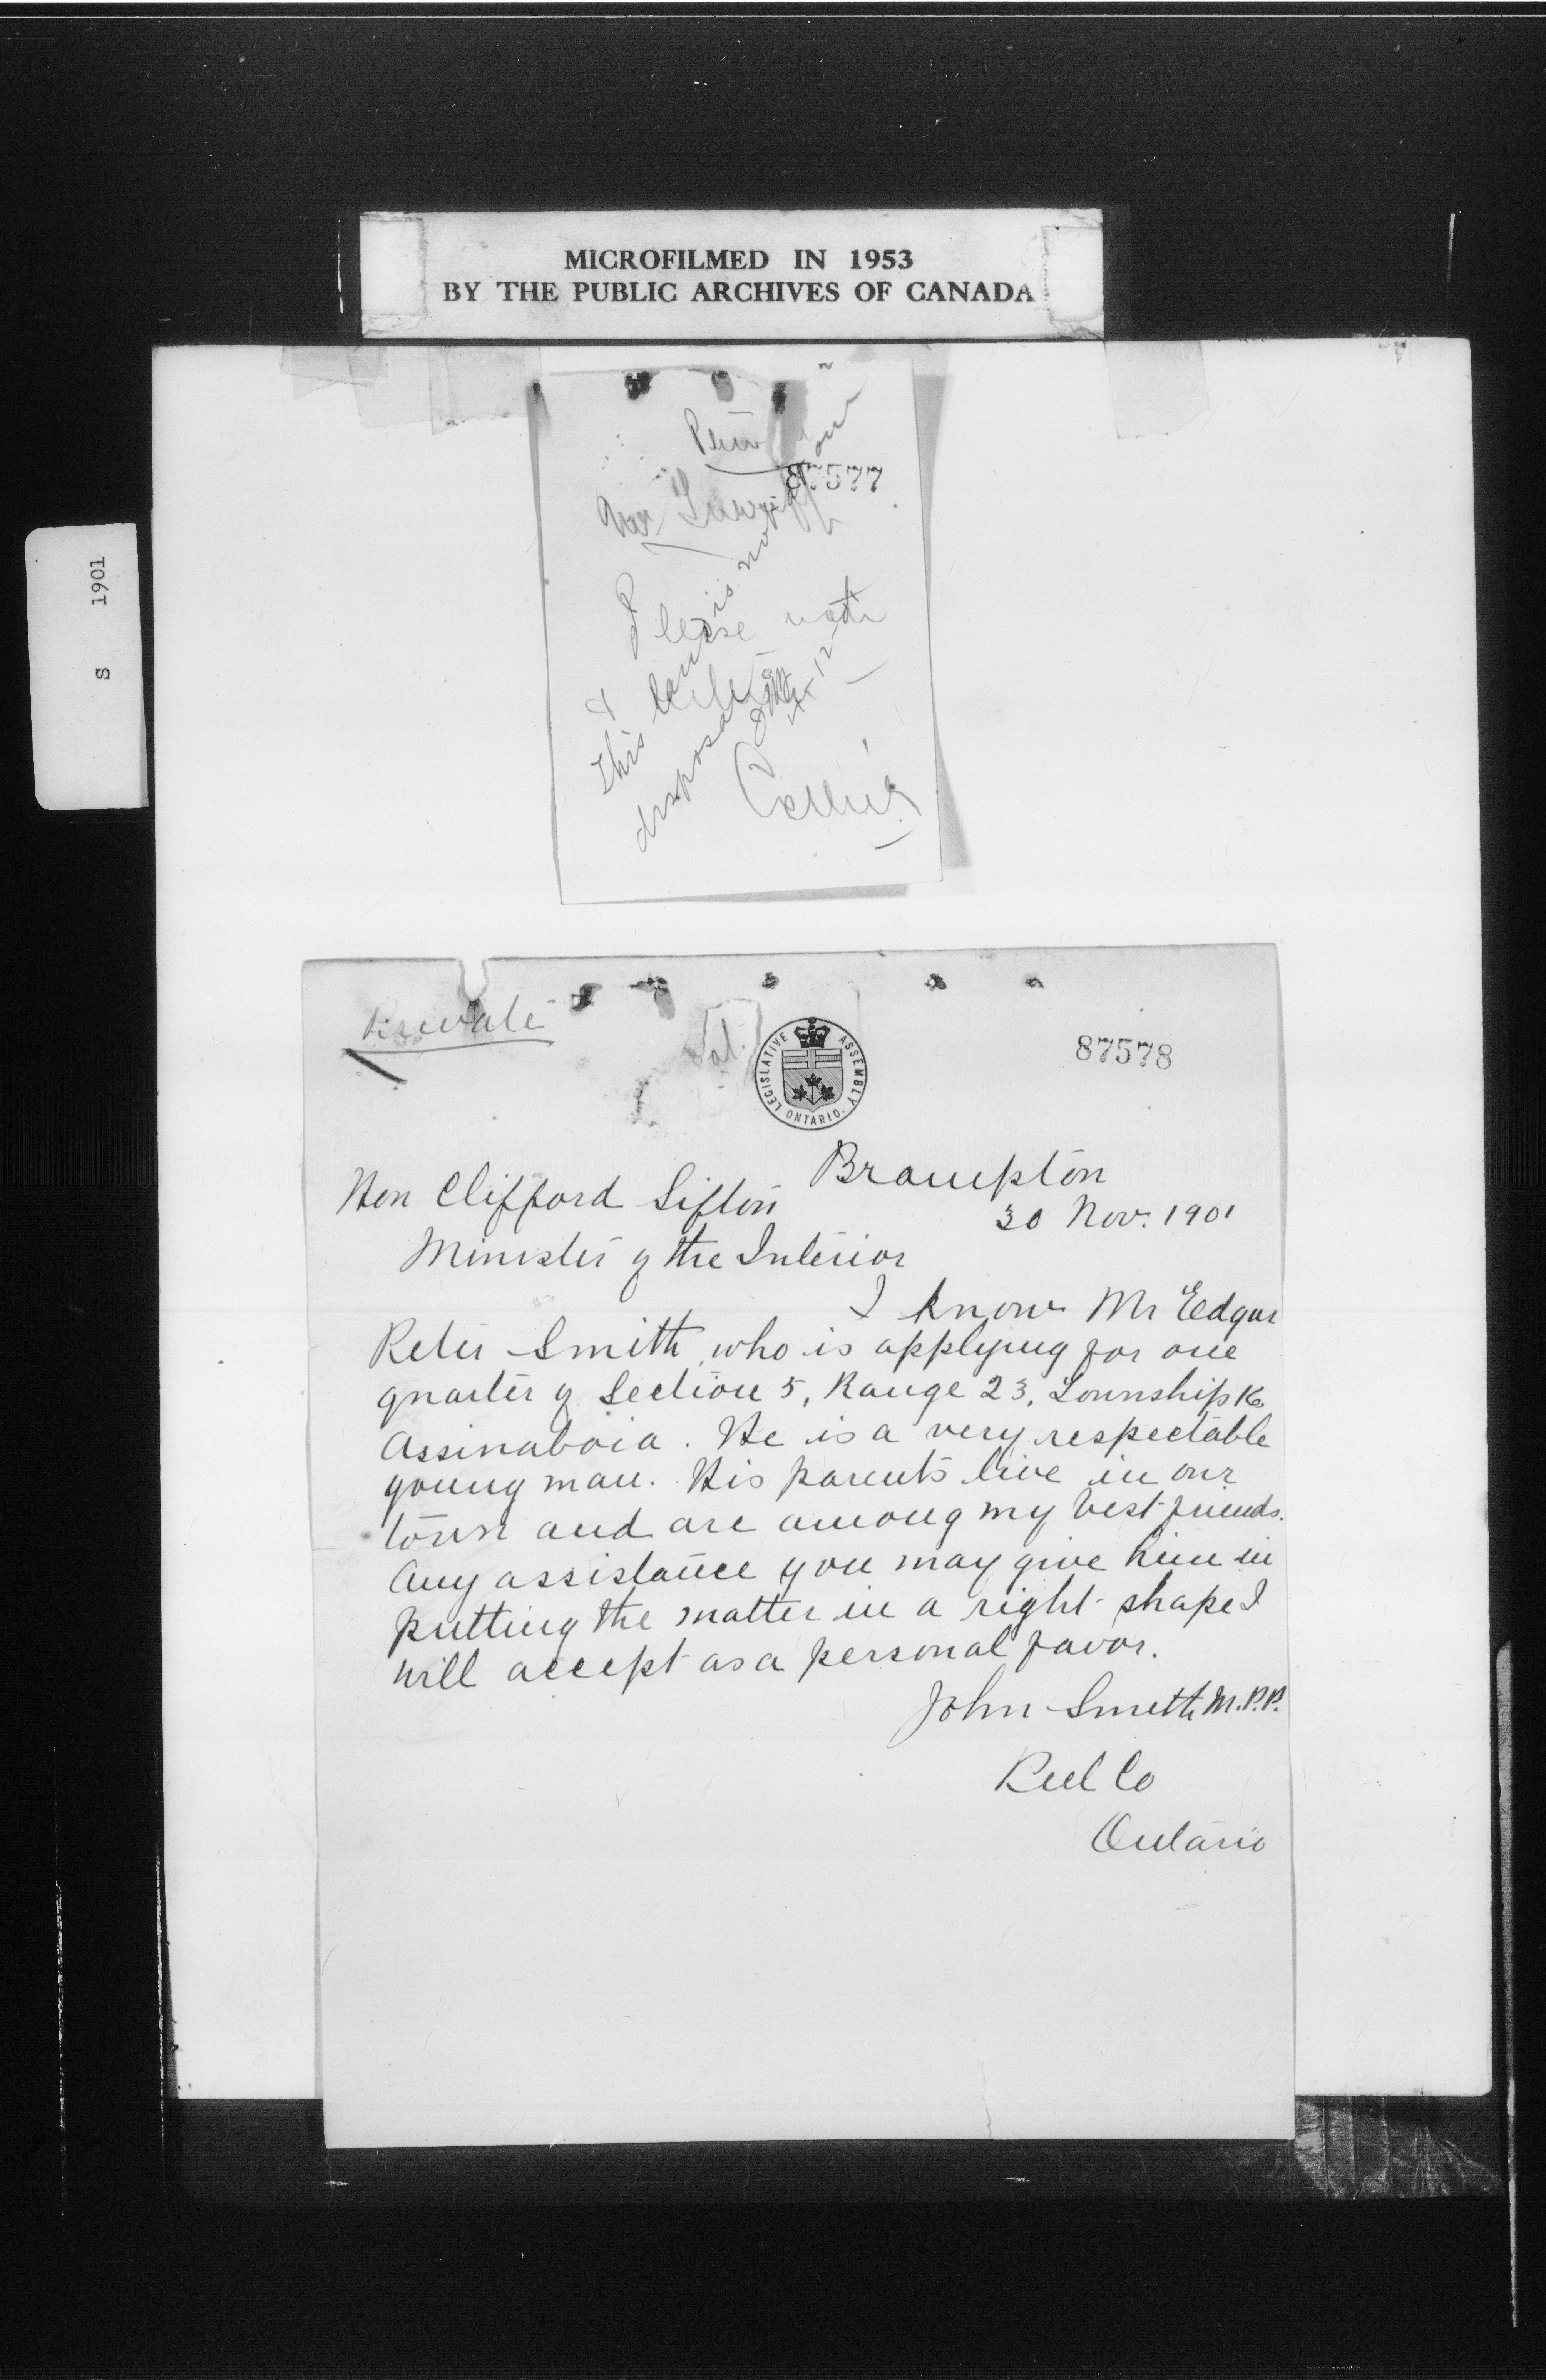 MICROFILMED IN 1953
BY THE PUBLIC ARCHIVES OF CANADA
S 1901
87577
Please note
&
This land is not our
disposal
Private
87578
LEGISLATIVE ASSEMBLY
ONTARIO.
Brampton
30 Nov. 1901
Hon Clifford Sifton
Minister of the Interior
I know Mr Edgar
Peter Smith, who is applying for one
quarter of Section 5, Range 23, Township 16
Assinaboia. He is a very respectable
young man. His parents live in our
town and are among my best friends.
Any assistance you may give him in
putting the matter in a right shape I
will accept as a personal favor.
John Smith M.P.P.
Peel Co
Ontario